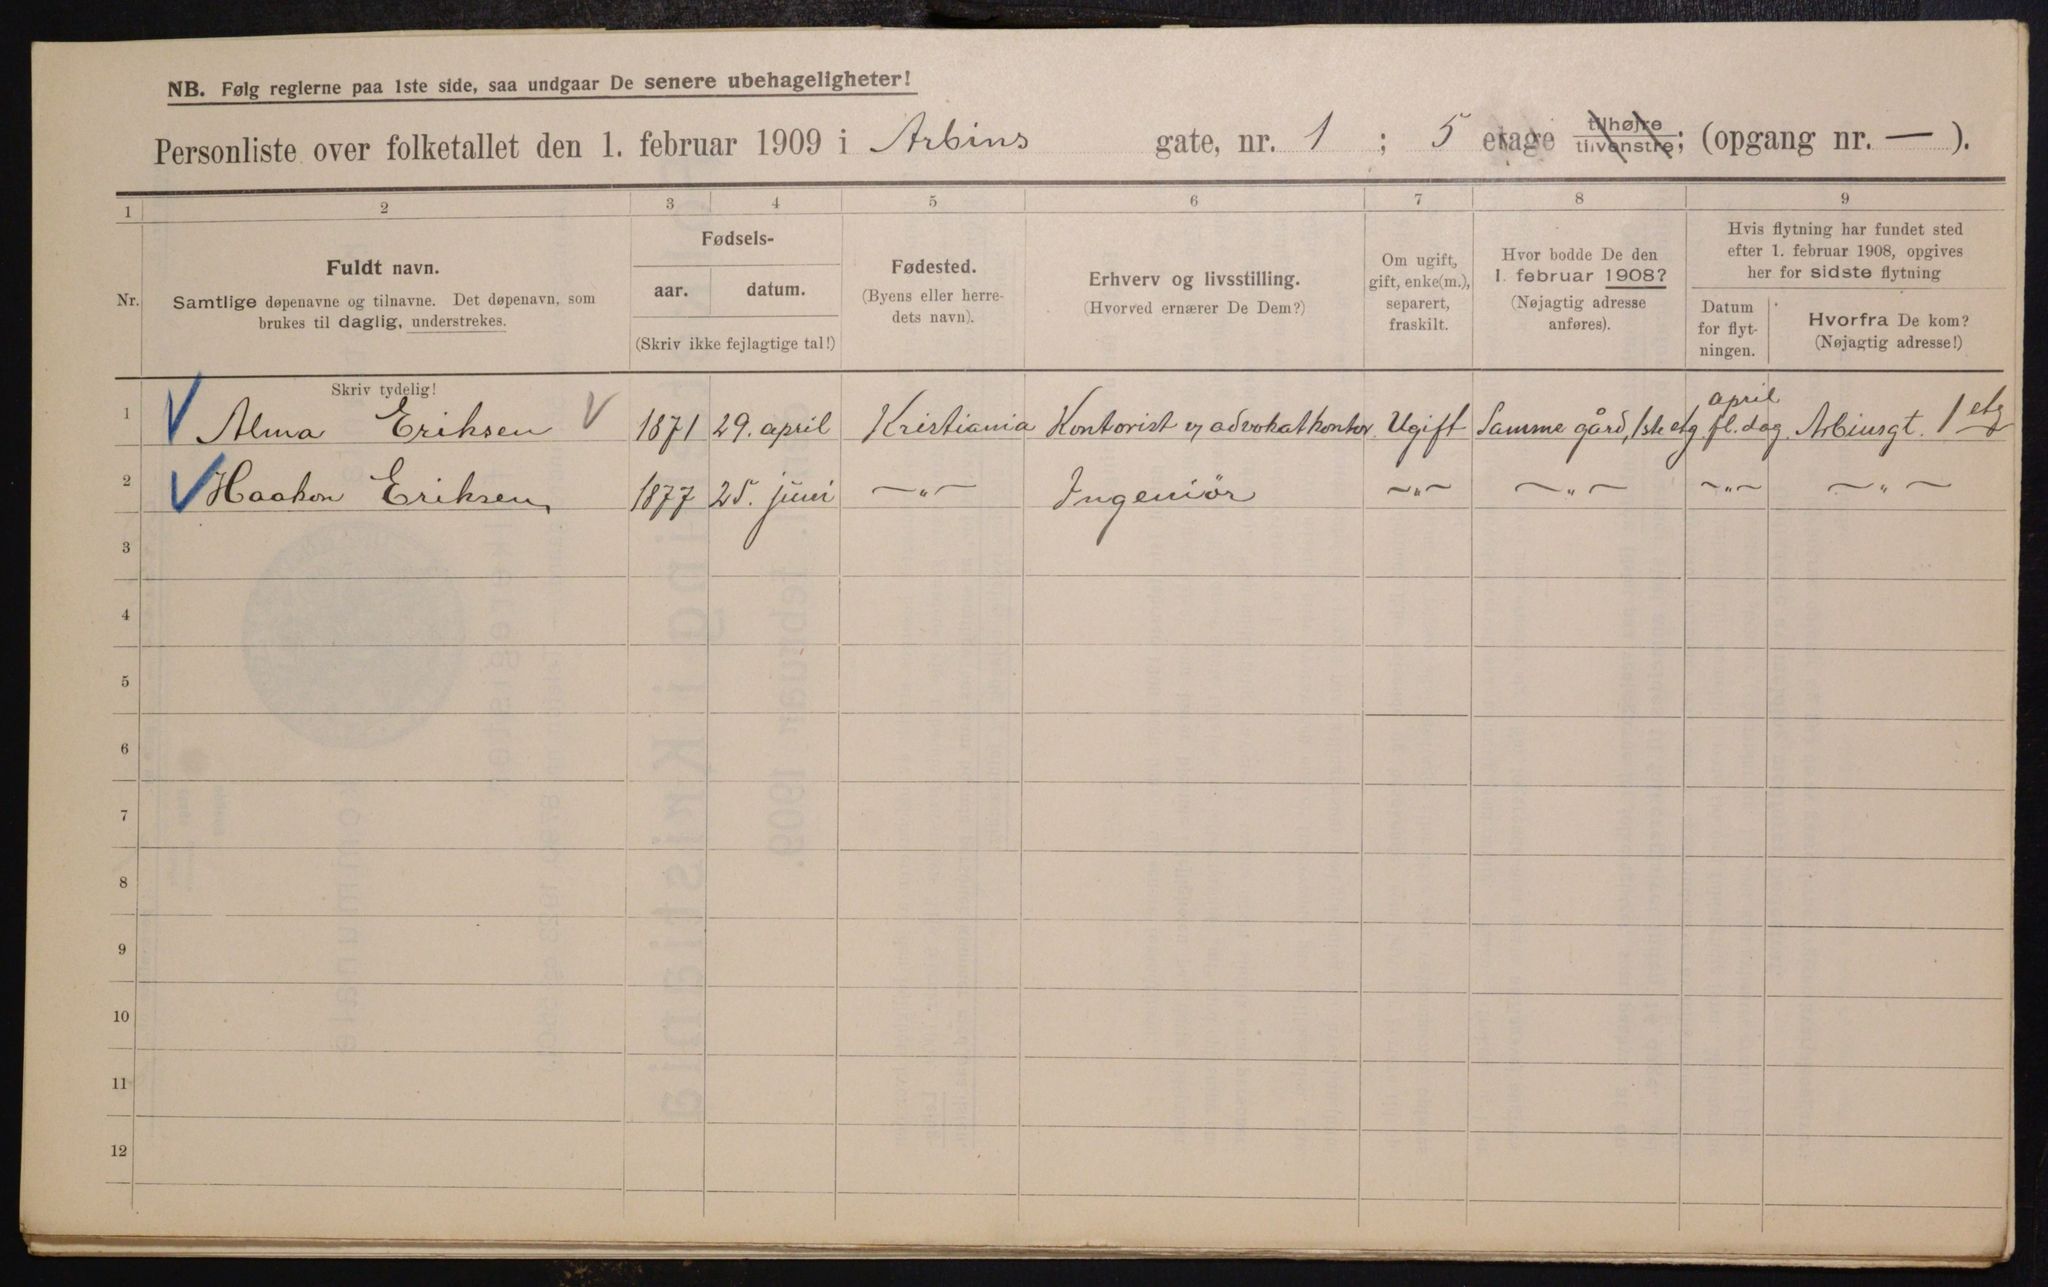 NB. Følg reglerne paa 1ste side, saa undgaar De senere ubehageligheter!
Personliste over folketallet den 1. februar 1909 i Arbins gate, nr. 1 ; 5 etage tilhøjre tilvenstre; (opgang nr. — ).
1 2 3 4 5 6 7 8 9
Nr.
Fuldt navn.
Samtlige døpenavne og tilnavne. Det døpenavn, som
brukes til daglig, understrekes.
Fødsels-
aar. datum.
(Skriv ikke fejlagtige tal!)
Fødested.
(Byens eller herre-
dets navn).
Erhverv og livsstilling.
(Hvorved ernærer De Dem?)
Om ugift,
gift, enke(m.),
separert,
fraskilt.
Hvor bodde De den
1. februar 1908?
(Nøjagtig adresse
anføres).
Hvis flytning har fundet sted
efter 1. februar 1908, opgives
her for sidste flytning
Datum
for flyt-
ningen.
Hvorfra De kom?
(Nøjagtig adresse!)
Skriv tydelig!
1 Alma Eriksen 1871 29. april Kristiania Kontorist v/ advokatkontor Ugift Samme gård, 1ste etg. april fl. dag Arbinsgt. 1 etg
2 Haakon Eriksen 1877 25. juni —„— Ingeniör —„— —„— —„— —„—
3
4
5
6
7
8
9
10
11
12